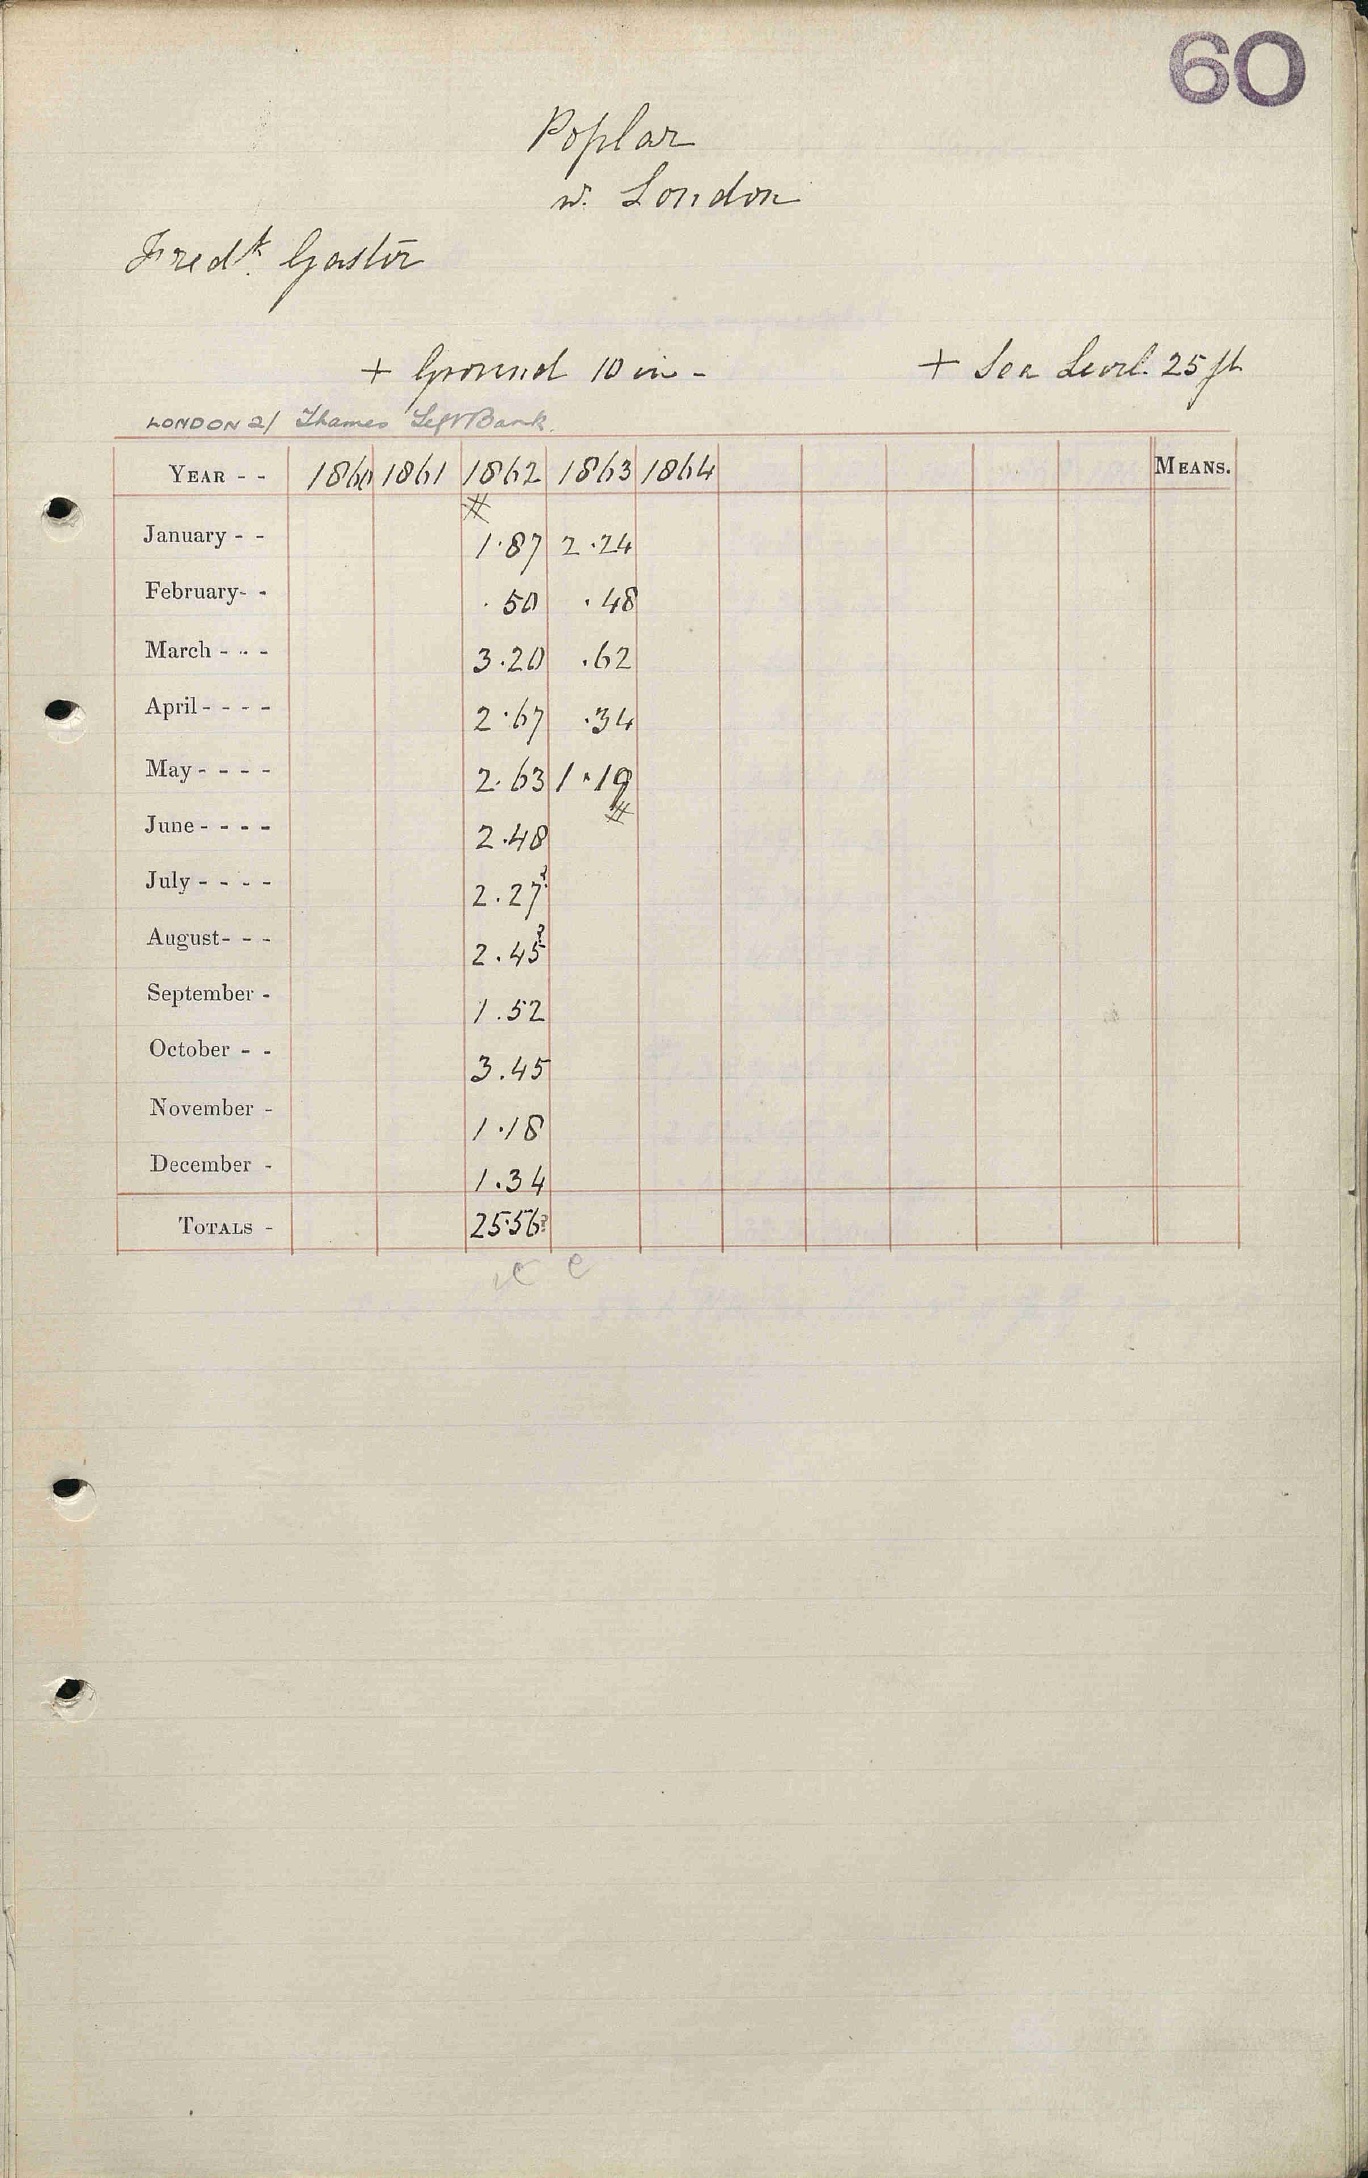 60
Poplar
n. London
Fredk. Gaster
+ Ground 10 in - + Sea Level. 25 ft
LONDON 2/ Thames Left Bank.
YEAR - - 1860 1861 1862 1863 1864 MEANS.
#
January - - 1.87 2.24
February- - .50 .48
March - - - 3.20 .62
April - - - - 2.67 .34
May - - - - 2.63 1.19
#
June - - - - 2.48
July - - - - 2.27?
August- - - 2.45?
September - 1.52
October - - 3.45
November - 1.18
December - 1.34
TOTALS - 25.56?
c c